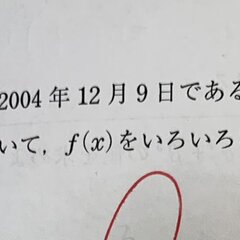 2004年12月9日である
いて，f(x)をいろいろ